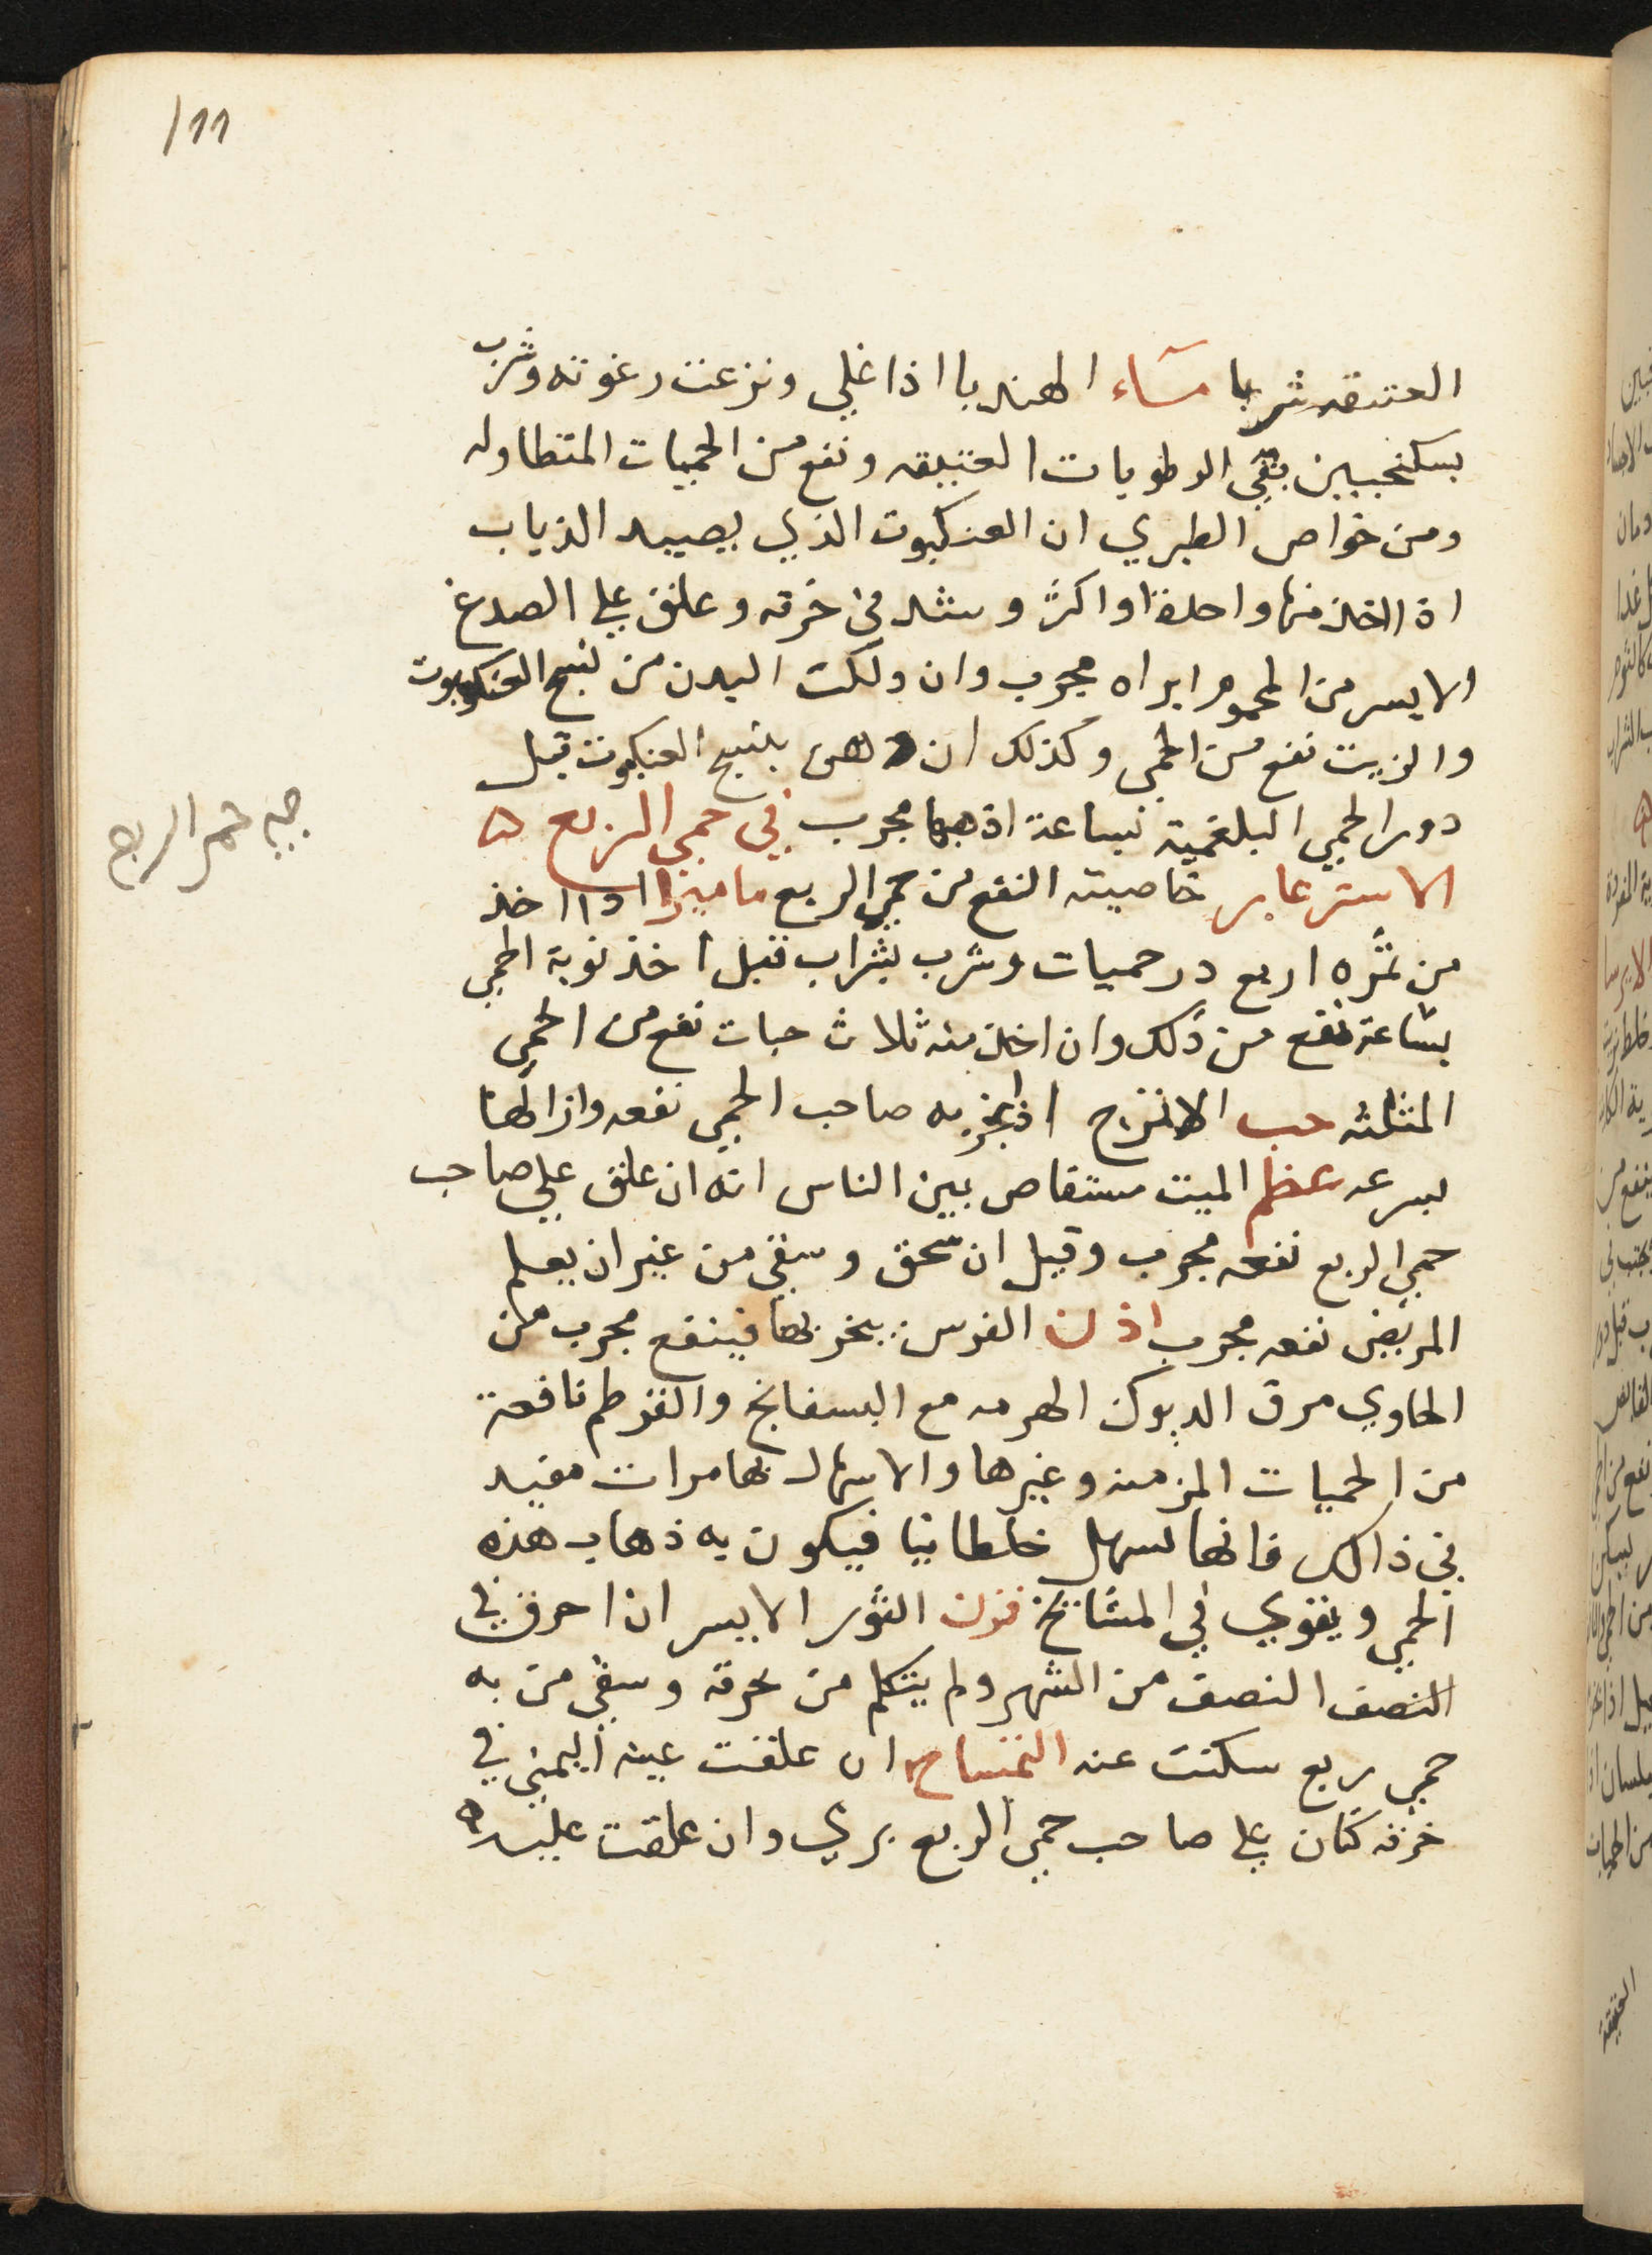 111
العتيقه شربا مآء الهندبا اذا غلي ونزعت رغوته وشرب
بسكنجبين ينقي الرطوبات العتيقه ونفع من الحميات المتطاوله
ومن خواص الطبري ان العنكبوت الذي يصيد الذباب
اذا اخذ منها واحدا او اكثر وشد في خرقه وعلق علي الصدغ
الايسر من المحموم ابراه مجرب وان دلكت البدن من نسج العنكبوت
والزيت نفع من الحمي وكذلك ان دهن بنسج العنكبوت قبل
دور الحمي البلغمية بساعة اذهبها مجرب في حمي الربع ه
الاسترغابر خاصيته النفع من حمي الربع ماميزا اذا اخذ
من ثمره اربع درحميات وشرب بشراب قبل اخذ نوبة الحمي
بساعة نفع من ذلك وان اخذ منه ثلاث حبات نفع من الحمي
المثلثه حب الاترج اذا بخر به صاحب الحمي نفعه وازالها
بسرعه عظم الميت مستفاض بين الناس انه ان علق علي صاحب
حمي الربع نفعه مجرب وقيل ان سحق وسقي من غير ان يعلم
المريض نفعه مجرب اذن الفرس يبخر بها فينفع مجرب من
الحاوي مرق الديوك الهرمه مع البسفانج والقرطم نافعة
من الحميات المزمنه وغيرها والاسهال بها مرات مفيد
في ذالك فانها تسهل خلطا نيا فيكون به ذهاب هذه
الحمي ويقوي في المشايخ قرن الثور الايسر ان احرق في
النصف النصف من الشهر ولم يتكلم من يحرقه وسقي من به
حمي ربع سكنت عنه التمساح ان علقت عينه اليمني في
خرقه كتان علي صاحب حمي الربع بري وان علقت عليه
حمي الربع